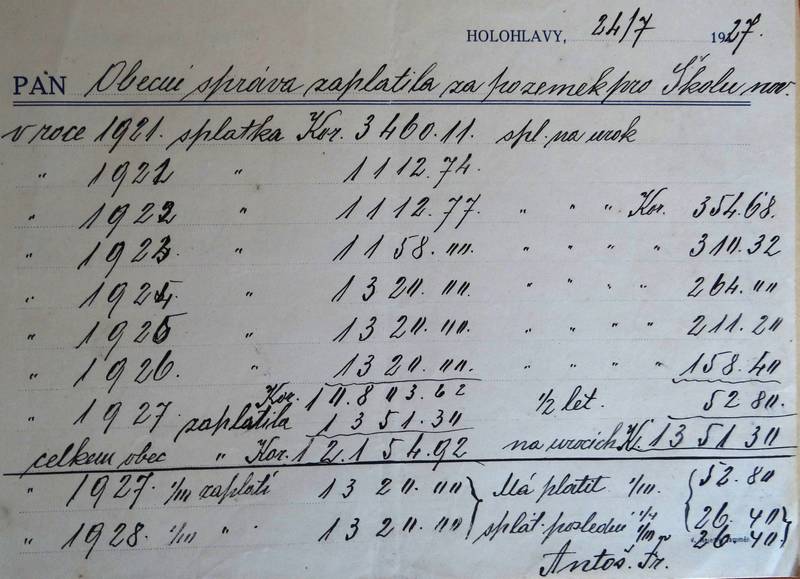 HOLOHLAVY, 24/7 1927.
PAN Obecní správa zaplatila za pozemek pro Školu nov.
v roce 1921. splatka Kor. 3460.11. spl. na urok
" 1922 " 1112.74.
" 1922 " 1112.77. " " " Kor. 354.68.
" 1923 " 1158.00. " " " " 310.32
" 1924. " 1320.00. " " " " 264.00
" 1925 " 1320.00. " " " " 211.20
" 1926. " 1320.00. 158.40
Kor. 10.803.62 ½ let. 52 80.
" 1927 zaplatila 1351.30
celkem obec " Kor. 12.154.92 na urocích K. 1351 30
" 1927. 1/III zaplatí 1320.00 Má platit 1/III. 52.80
" 1928. 1/III " " 1320.00 splát. poslední 26.40
1/III 26.40
Antoš. Fr.